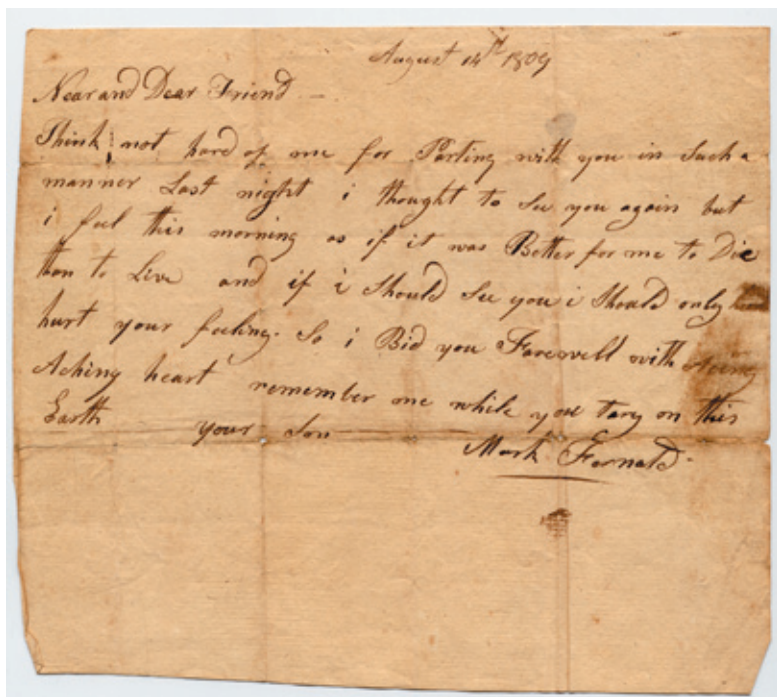 August 14th 1809
Near and Dear Friend —
Think not hard of me for Parting with you in Such a
manner Last night i thought to See you again but
i feel this morning as if it was Better for me to Die
than to Live and if i Should See you i Should only
hurt your feeling. So i Bid you Farewell with
Aching heart remember me while you tary on this
Earth your Son
Mark Fernald.